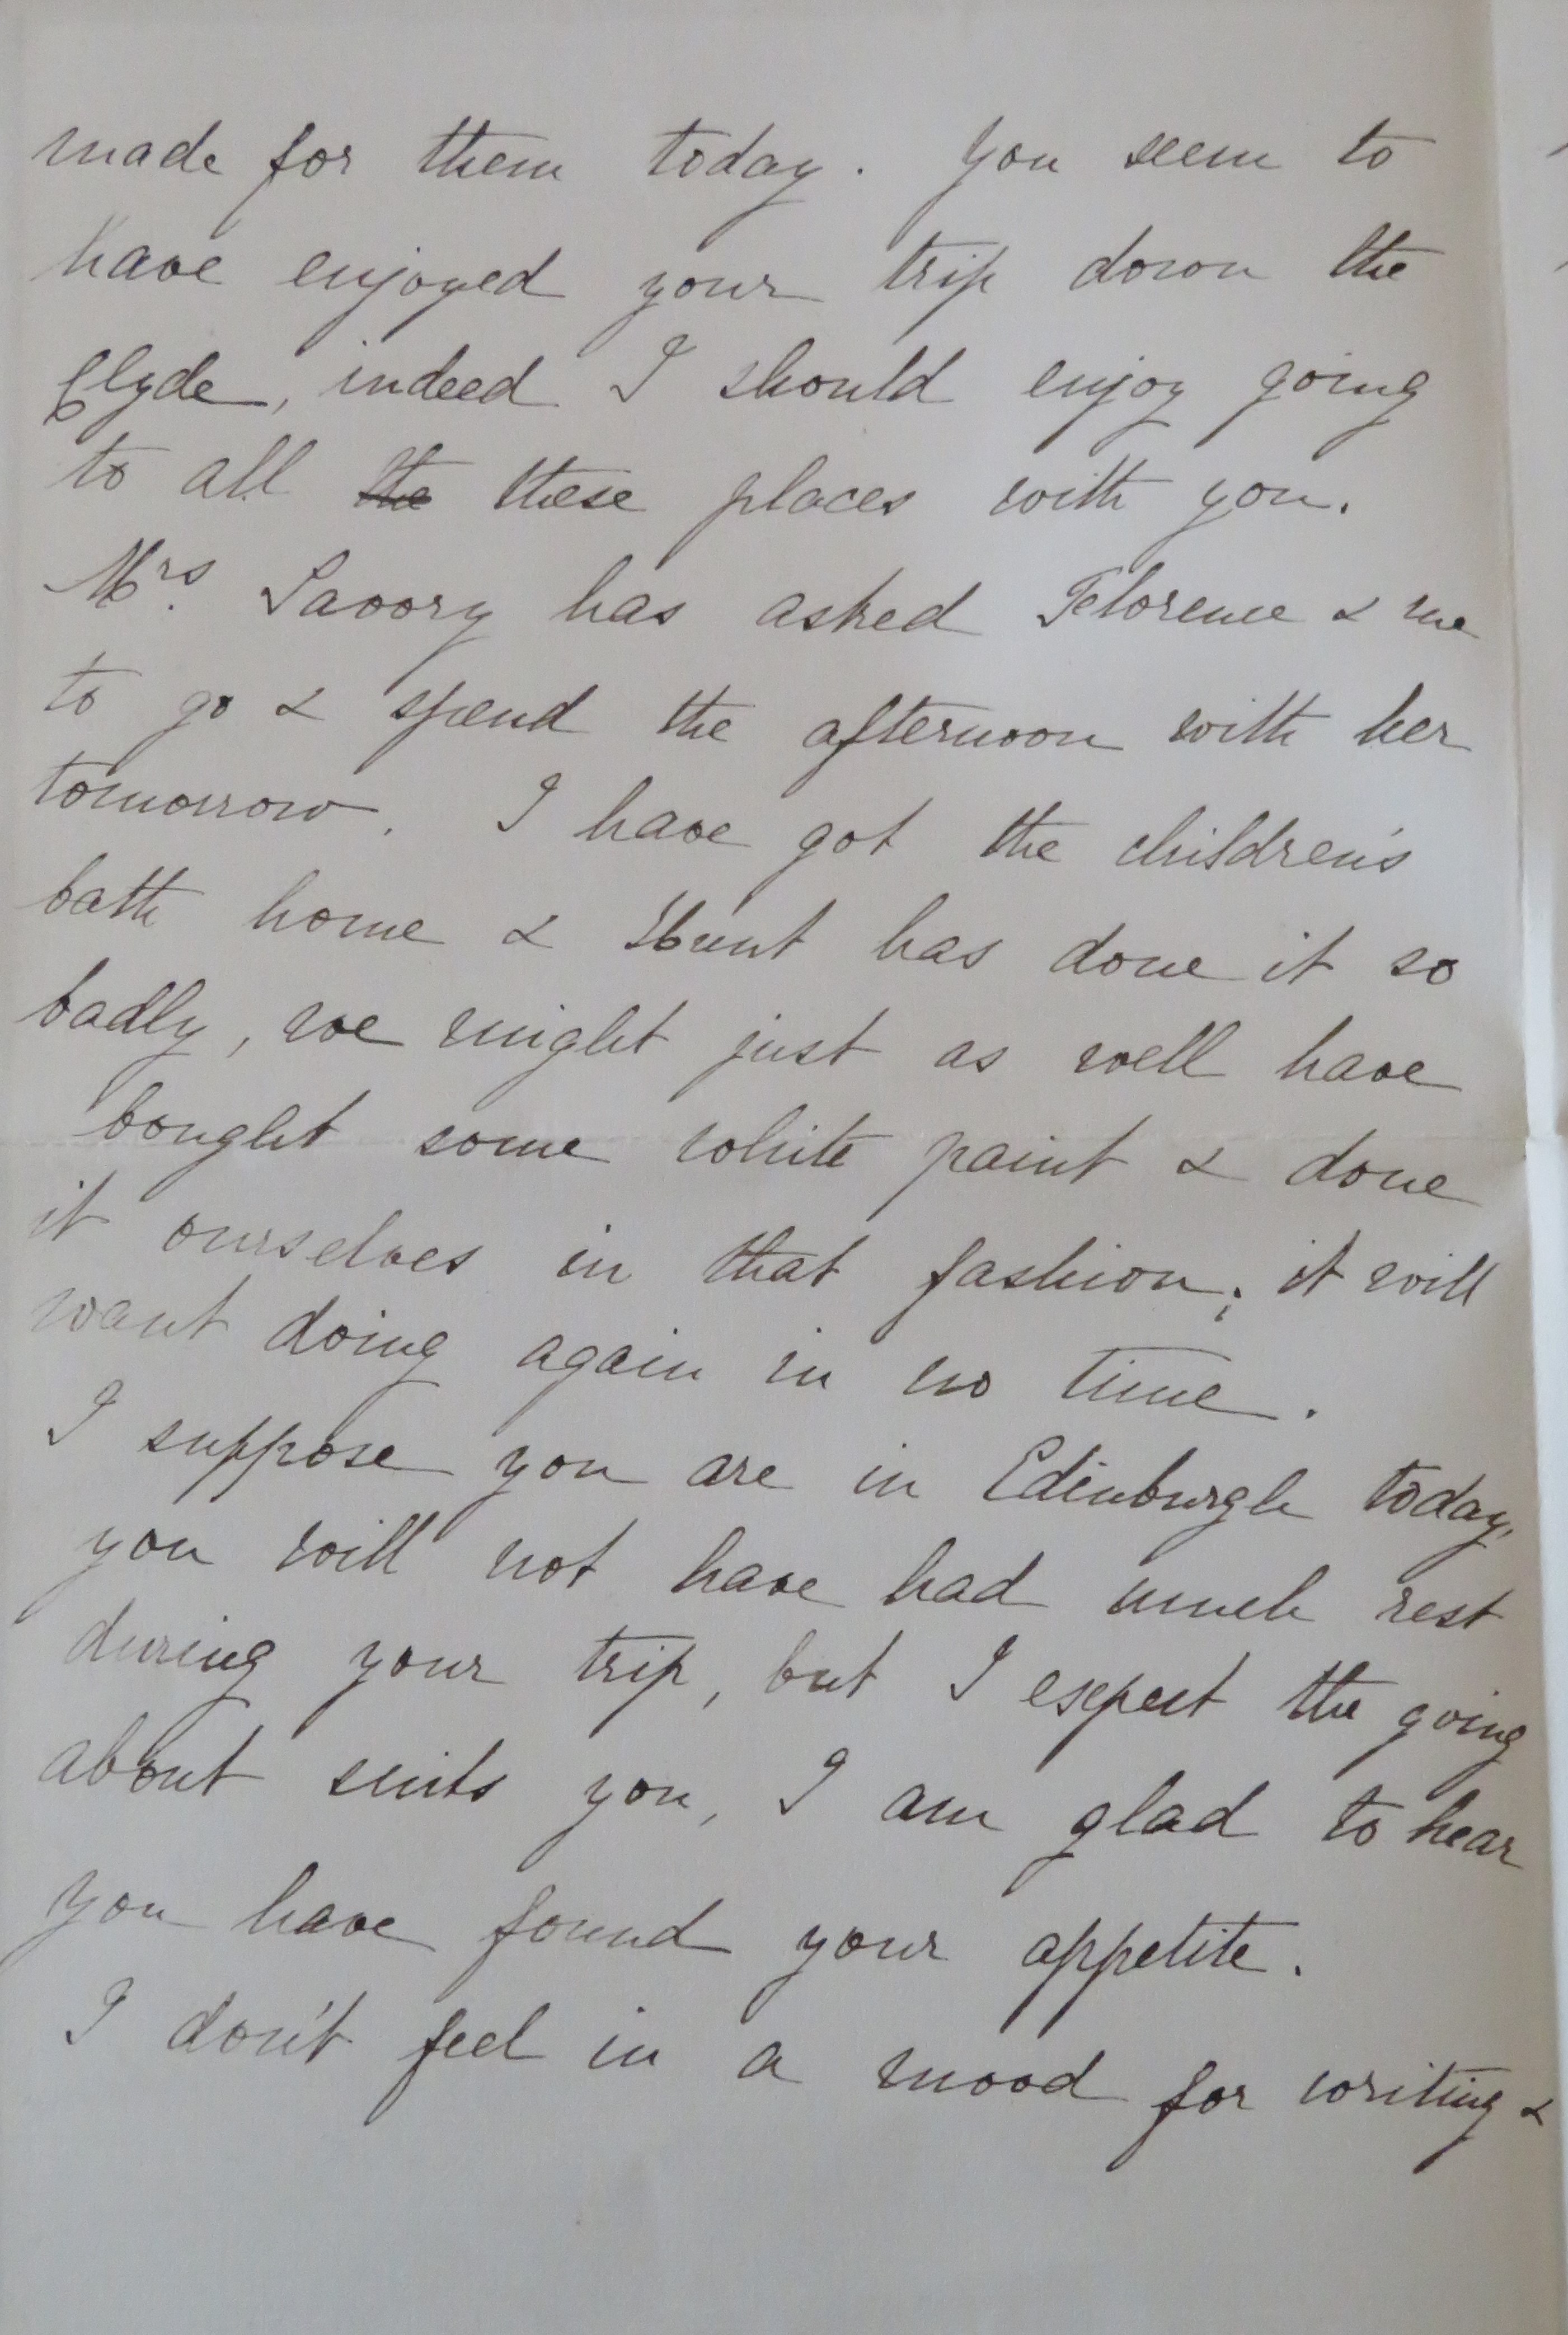 made for them today. You seem to
have enjoyed your trip down the
Clyde, indeed I should enjoy going
to all the these places with you.
Mrs. Savory has asked Florence & me
to go & spend the afternoon with her
tomorrow. I have got the children's
bath home & Hunt has done it so
badly, we might just as well have
bought some white paint & done
it ourselves in that fashion; it will
want doing again in no time.
I suppose you are in Edinburgh today,
you will not have had much rest
during your trip, but I expect the going
about suits you, I am glad to hear
you have found your appetite.
I don't feel in a mood for writing &